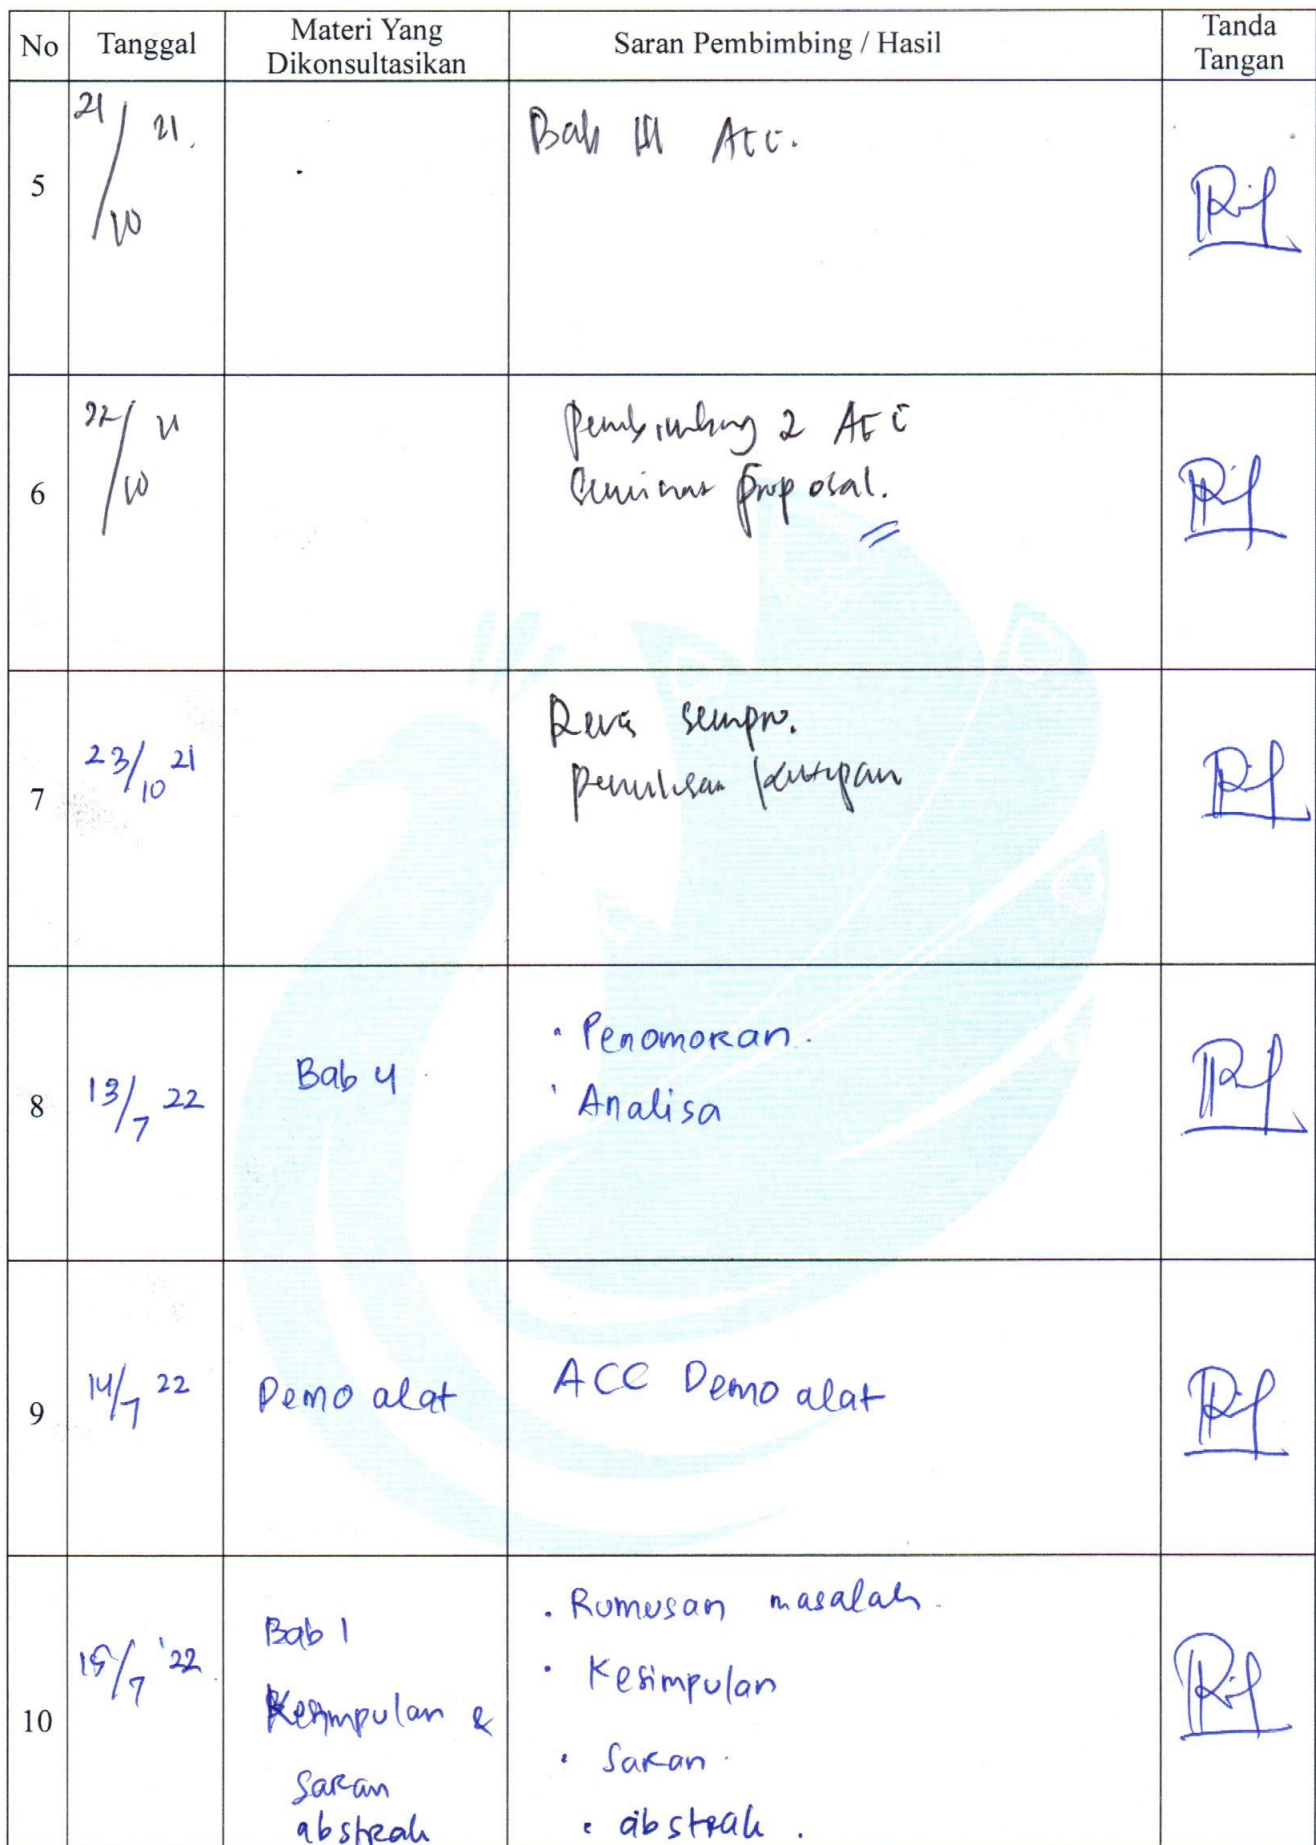 No Tanggal Materi Yang Dikonsultasikan Saran Pembimbing / Hasil Tanda Tangan
5 21/10 21. Bab III Acc.
6 22/10 21 Pembimbing 2 Acc
Seminar proposal.
7 23/10 21 sempro.
Penulisan kutipan
8 13/7 22 Bab 4 • Penomoran.
• Analisa
9 14/7 22 Demo alat ACC Demo alat
10 15/7 '22 Bab 1 • Rumusan masalah.
Kesimpulan & • Kesimpulan
saran • saran.
abstrak • abstrak.